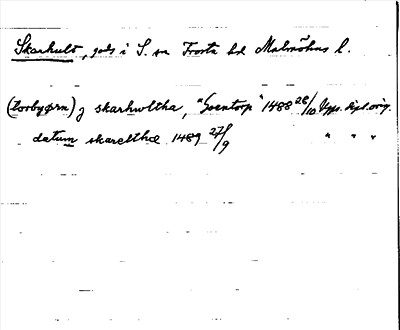 Skarhult, gods i S. sn Frosta hd Malmöhus l.
(torbyørn) j skarhwltha, "Sventorp" 1488 28/10 Upps. dipl. orig.
datum skarelthæ 1489 27/9 " " "